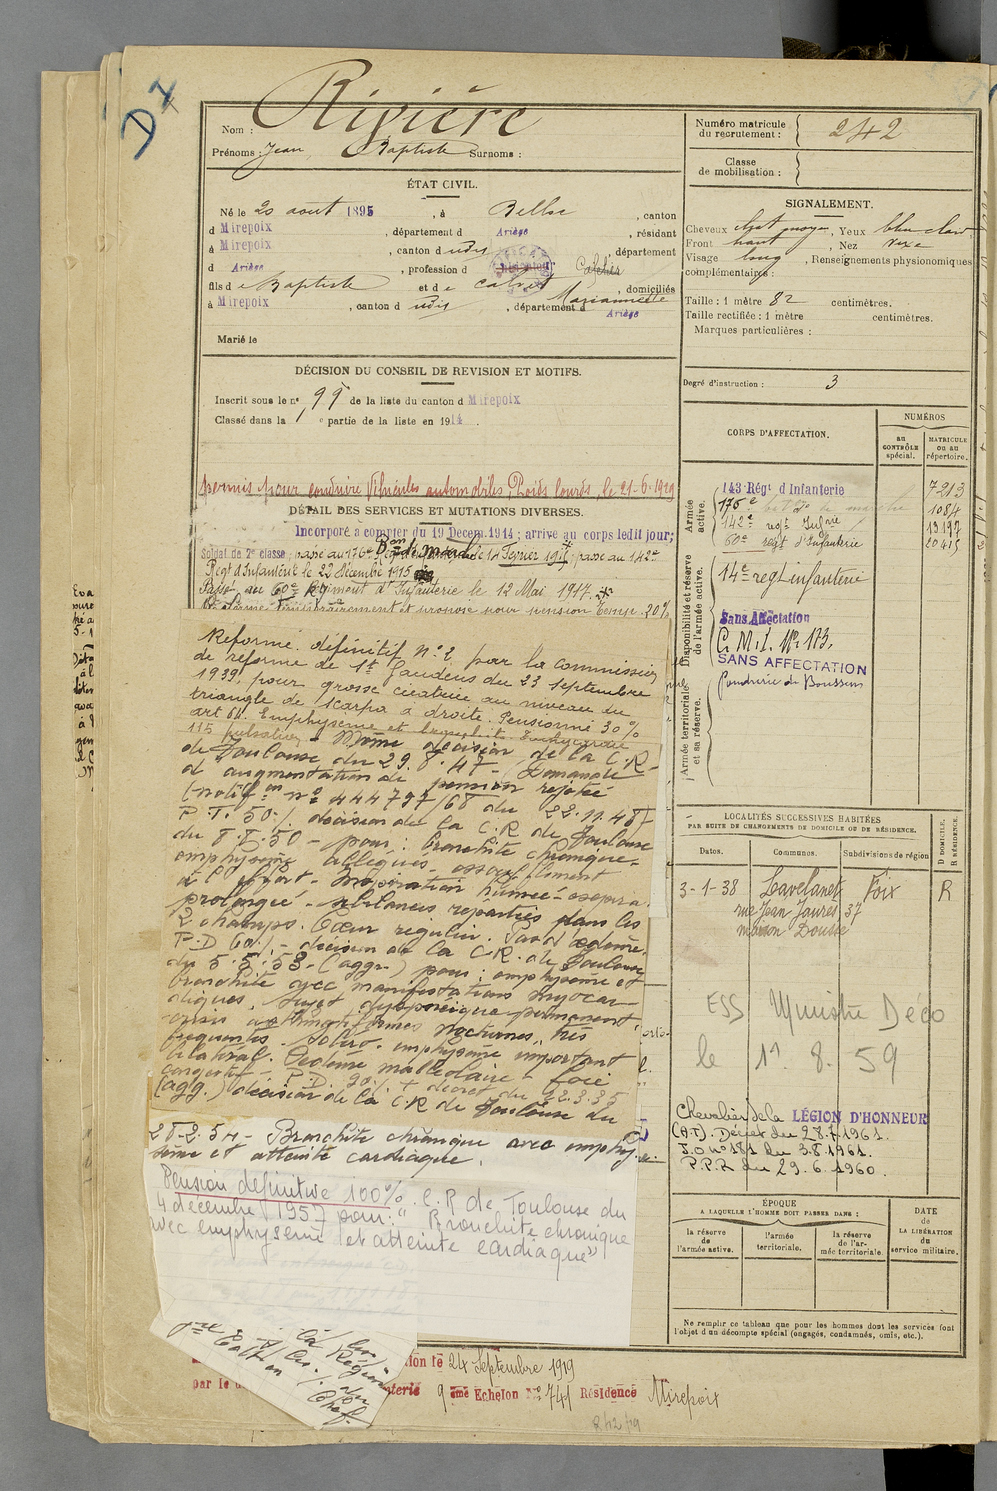 D 7
Nom : Rivière
Prénoms : Jean Baptiste Surnoms :
ÉTAT CIVIL.
Né le 20 aout 1895, à Belloc, canton
d Mirepoix, département d Ariège, résidant
à Mirepoix, canton d udis, département
d Ariège, profession d
fils de Baptiste et de Calvet Mariannette, domiciliés
à Mirepoix, canton d udis, département d Ariège
Marié le
DÉCISION DU CONSEIL DE REVISION ET MOTIFS.
Inscrit sous le n° 99 de la liste du canton d Mirepoix
Classé dans la 1e partie de la liste en 1914.
permis pour conduire Véhicules automobiles, Poids lourds, le 21-6-1929
DÉTAIL DES SERVICES ET MUTATIONS DIVERSES.
Incorporé à compter du 19 Décem. 1914 ; arrivé au corps ledit jour;
Soldat de 2e classe, passé au 176e février 1915, passé au 142e
Régt d'Infanterie le 22 Décembre 1915
Passé au 60e Régiment d'Infanterie le 12 Mai 1917.
Réformé temporairement et proposé pour pension temp. 20%
Réformé définitif N° 2 par la commission
de réforme de St Gaudens du 23 septembre
1939, pour grosse cicatrice au niveau du
triangle de Scarpa à droite. Pensionné 30%
art 64. Emphysème et bronchite.
115 pulsations - Même décision de la C.R.
de Toulouse du 29.8.47 - Demande
d'augmentation de pension rejetée
(notif on n° 444797/68 du 22.11.48)
P.T. 50% décision de la C.R de Toulouse
du 8.I.50 - pour : bronchite chronique -
emphysème allégués - essoufflement
à l'effort - Inspiration humée - expira.
prolongée - sibilances réparties dans les
2 champs. Cœur régulier. Pas d'œdème.
P.D 60% - décision de la C.R. de Toulouse
du 5.5.53 - (aggr.) pour : emphysème et
bronchite avec manifestations myocar-
diques. Sujet dyspnéique permanent,
crises asthmatiformes nocturnes, très
fréquentes. Scléro-emphysème important
bilatéral. Oedème malléolaire - Foie
congestif - P.D. 90% + décret du 22.3.35
(agg.) décision de la C.R de Toulouse du
28-2-54 - Bronchite chronique avec emphy-
sème et atteinte cardiaque.
Pension définitive 100% C.R de Toulouse du
4 décembre 1957 pour : " Bronchite chronique
avec emphysème et atteinte cardiaque"
24 Septembre 1919
par le d
9 ème Echelon N° 741 Résidence Mirepoix
Numéro matricule
du recrutement : 242
Classe
de mobilisation :
SIGNALEMENT.
Cheveux chat moyen, Yeux bleu clair
Front haut, Nez
Visage long, Renseignements physionomiques
complémentaires :
Taille : 1 mètre 82 centimètres.
Taille rectifiée : 1 mètre centimètres.
Marques particulières :
Degré d'instruction : 3
CORPS D'AFFECTATION.
NUMÉROS
au
CONTRÔLE
spécial.
MATRICULE
ou au
répertoire.
Armée
active.
143 Régt d Infanterie 7213
176e bat on de marche 1084
142e regt Infrie 13197
60e regt d'Infanterie 20415
Disponibilité et réserve
de l'armée active.
14e regt infanterie
Sans Affectation
C. M. I. N° 173.
SANS AFFECTATION
Poudrerie de Boussens
Armée territoriale
et sa réserve.
LOCALITÉS SUCCESSIVES HABITÉES
PAR SUITE DE CHANGEMENTS DE DOMICILE OU DE RÉSIDENCE.
Dates.
Communes.
Subdivisions de région
D DOMICILE.
R RÉSIDENCE.
3-1-38 Lavelanet Foix R
rue Jean Jaures 37
maison Dousse
ESS Ministre Déco
le 11 8. 59
Chevalier de la LÉGION D'HONNEUR
(A.T). Décret du 28.7.1961.
J.O n° 181 du 3.8.1961.
P.P.R du 29.6.1960.
ÉPOQUE
A LAQUELLE L'HOMME DOIT PASSER DANS :
DATE
DE LA LIBÉRATION
du
service militaire.
la réserve
de
l'armée active.
l'armée
territoriale.
la réserve
de l'ar-
mée territoriale.
Ne remplir ce tableau que pour les hommes dont les services font
l'objet d'un décompte spécial (engagés, condamnés, omis, etc.).